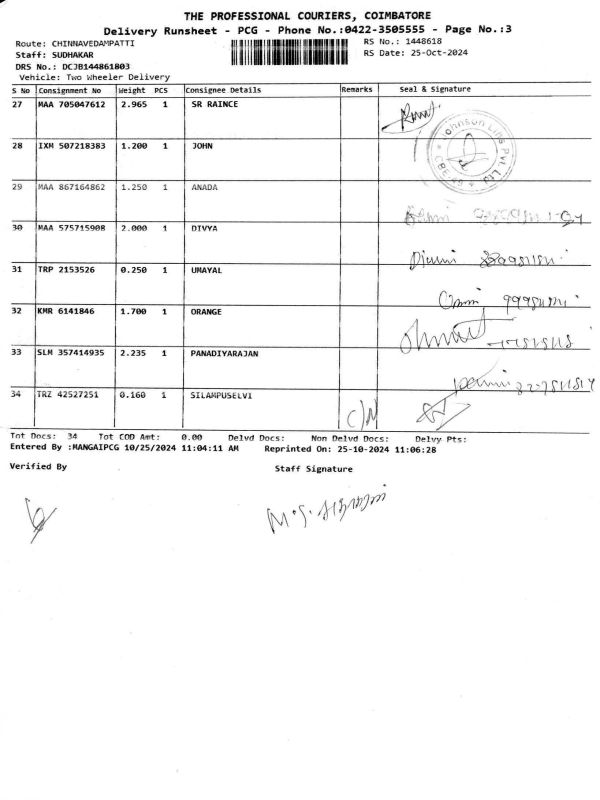 THE PROFESSIONAL COURIERS, COIMBATORE
Delivery Runsheet - PCG - Phone No.:0422-3505555 - Page No.:3
Route: CHINNAVEDAMPATTI RS No.: 1448618
Staff: SUDHAKAR RS Date: 25-Oct-2024
DRS No.: DCJB144861803
Vehicle: Two Wheeler Delivery
S No Consignment No Weight PCS Consignee Details Remarks Seal & Signature
27 MAA 705047612 2.965 1 SR RAINCE
Johnson Lifts Pvt Ltd
28 IXM 507218383 1.200 1 JOHN
29 MAA 867164862 1.250 1 ANADA
30 MAA 575715908 2.000 1 DIVYA
31 TRP 2153526 0.250 1 UMAYAL
32 KMR 6141846 1.700 1 ORANGE
33 SLM 357414935 2.235 1 PANADIYARAJAN
34 TRZ 42527251 0.160 1 SILAMPUSELVI
Tot Docs: 34 Tot COD Amt: 0.00 Delvd Docs: Non Delvd Docs: Delvy Pts:
Entered By :MANGAIPCG 10/25/2024 11:04:11 AM Reprinted On: 25-10-2024 11:06:28
Verified By Staff Signature